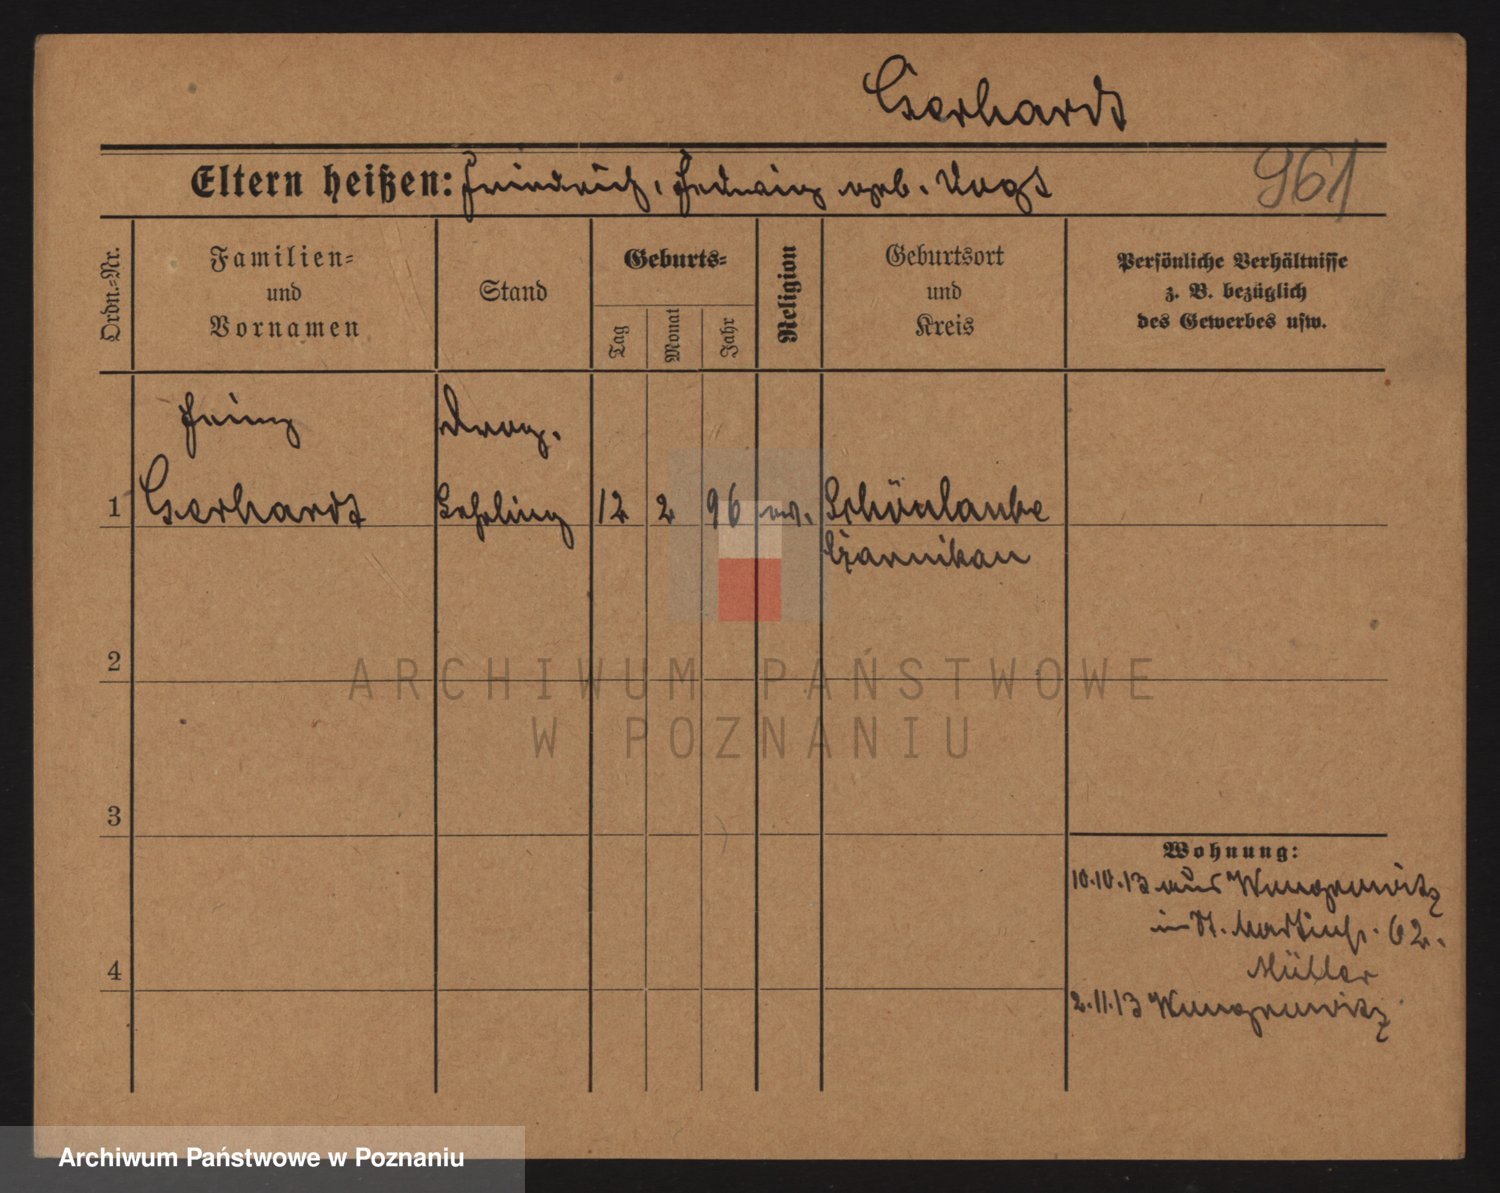 Gerhardt
961
Eltern heißen: Friedrich, Hedwig geb. Vogt
Ordn.-Nr.
Familien-
und
Vornamen
Stand
Geburts-
Tag
Monat
Jahr
Religion
Geburtsort
und
Kreis
Persönliche Verhältnisse
z. B. bezüglich
des Gewerbes usw.
Heinz Drog.
1 Gerhardt Lehrling 12 2 96 ev. Schönlanke
Czarnikau
2
3
4
Wohnung:
10.10.13 aus Wongrowitz
in St. Martinstr. 62.
Müller
2.11.13 Wongrowitz
ARCHIWUM PAŃSTWOWE
W POZNANIU
Archiwum Państwowe w Poznaniu